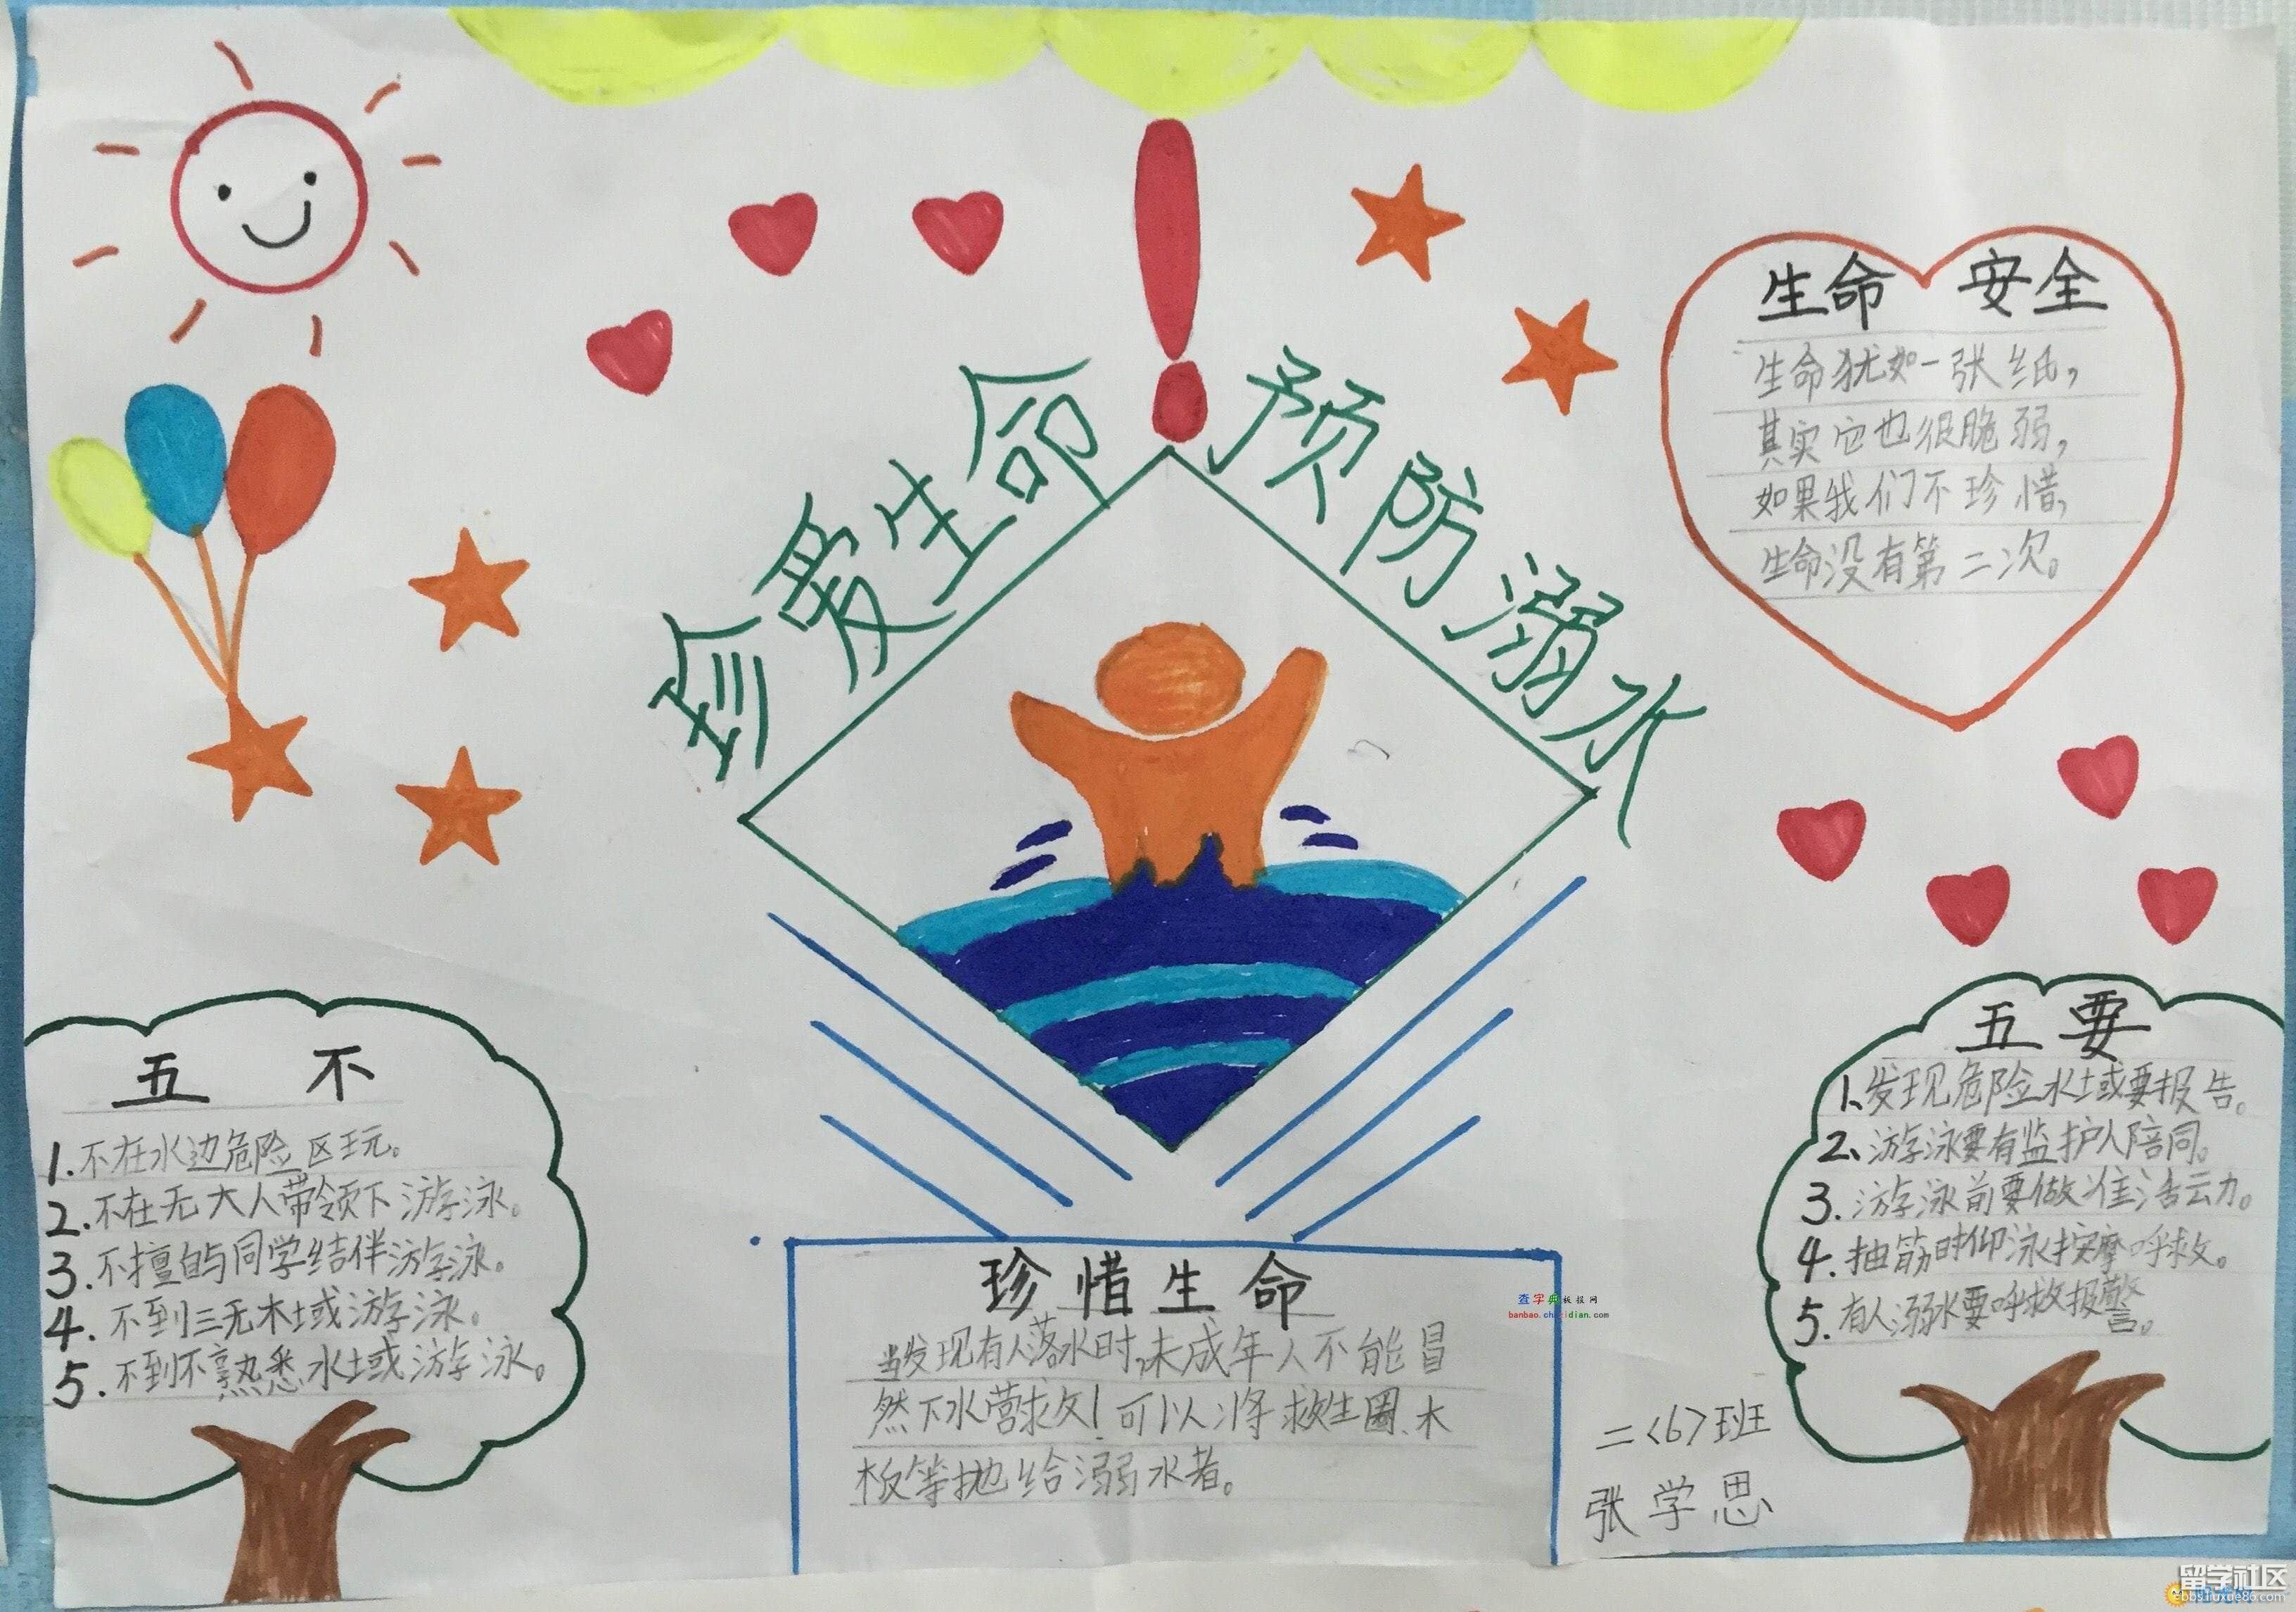 珍爱生命
预防溺水
生命 安全
生命犹如一张纸,
其实它也很脆弱,
如果我们不珍惜,
生命没有第二次。
五 不
1.不在水边危险区玩。
2.不在无大人带领下游泳。
3.不擅自与同学结伴游泳。
4.不到三无木域或游泳。
5.不到不熟悉水域或游泳。
五要
1、发现危险水域要报告。
2、游泳要有监护人陪同。
3.游泳前要做准活动。
4.抽筋时仰泳按摩呼救。
5.有人溺水要呼救报警。
珍惜生命
当发现有人落水时,未成年人不能冒
然下水营救!可以将救生圈、木
板等抛给溺水者。
二<6>班
张学思
查字典板报网
banbao.chazidian.com
留学社区
bbs.liuxue86.com